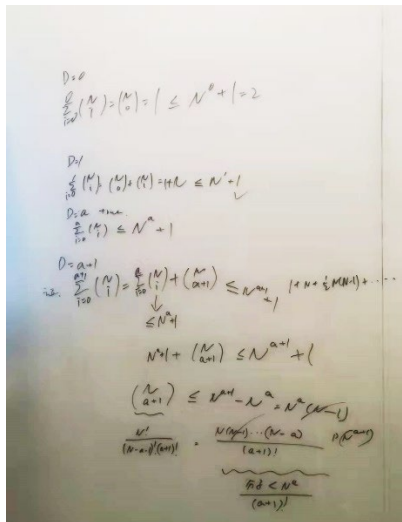 D=0
\sum_{i=0}^{0} \binom{N}{i} = \binom{N}{0} = 1 \le N^0 + 1 = 2
D=1
\sum_{i=0}^{1} \binom{N}{i} = \binom{N}{0} + \binom{N}{1} = 1+N \le N^1 + 1
D=a true
\sum_{i=0}^{a} \binom{N}{i} \le N^a + 1
D=a+1
\sum_{i=0}^{a+1} \binom{N}{i} = \sum_{i=0}^{a} \binom{N}{i} + \binom{N}{a+1} \le N^{a+1} + 1 1+N+\frac{1}{2}N(N-1)+.....
\le N^a+1
N^a+1 + \binom{N}{a+1} \le N^{a+1} + 1
\binom{N}{a+1} \le N^{a+1} - N^a = N^a (N-1)
\frac{N!}{(N-a-1)!(a+1)!} = \frac{N(N-1)...(N-a)}{(a+1)!}